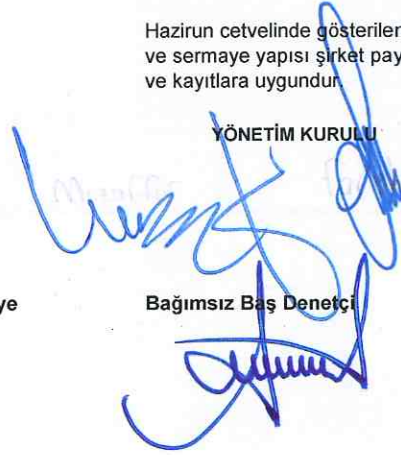 Hazirun cetvelinde gösterilen
ve sermaye yapısı şirket pay
ve kayıtlara uygundur.
YÖNETİM KURULU
ye
Bağımsız Baş Denetçi